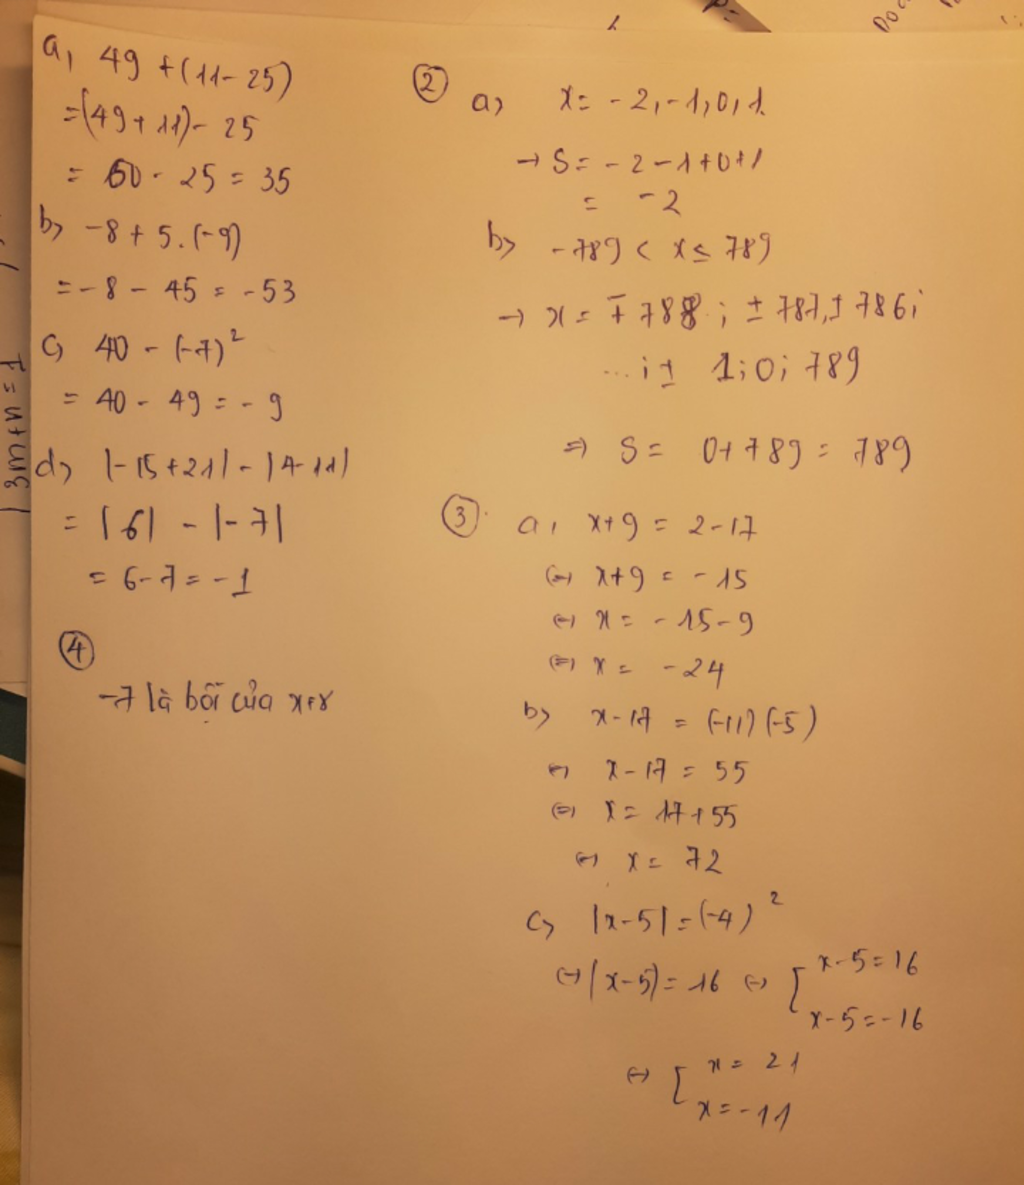 a, 49 + (11 - 25)
= (49 + 11) - 25
= 60 - 25 = 35
b) -8 + 5.(-9)
= -8 - 45 = -53
c) 40 - (-7)²
= 40 - 49 = -9
d) |-15 + 21| - |4 - 11|
= |6| - |-7|
= 6 - 7 = -1
④
-7 là bội của x+8
②
a) x = -2, -1, 0, 1
→ S = -2 - 1 + 0 + 1
= -2
b) -789 < x ≤ 789
→ x = ∓ 788; ± 787, ± 786;
...; ± 1; 0; 789
⇒ S = 0 + 789 = 789
③ a, x + 9 = 2 - 17
⇔ x + 9 = -15
⇔ x = -15 - 9
⇔ x = -24
b) x - 17 = (-11)(-5)
⇔ x - 17 = 55
⇔ x = 17 + 55
⇔ x = 72
c) |x - 5| = (-4)²
⇔ |x - 5| = 16 ⇔ [ x - 5 = 16
x - 5 = -16
⇔ [ x = 21
x = -11
3m+n = 1